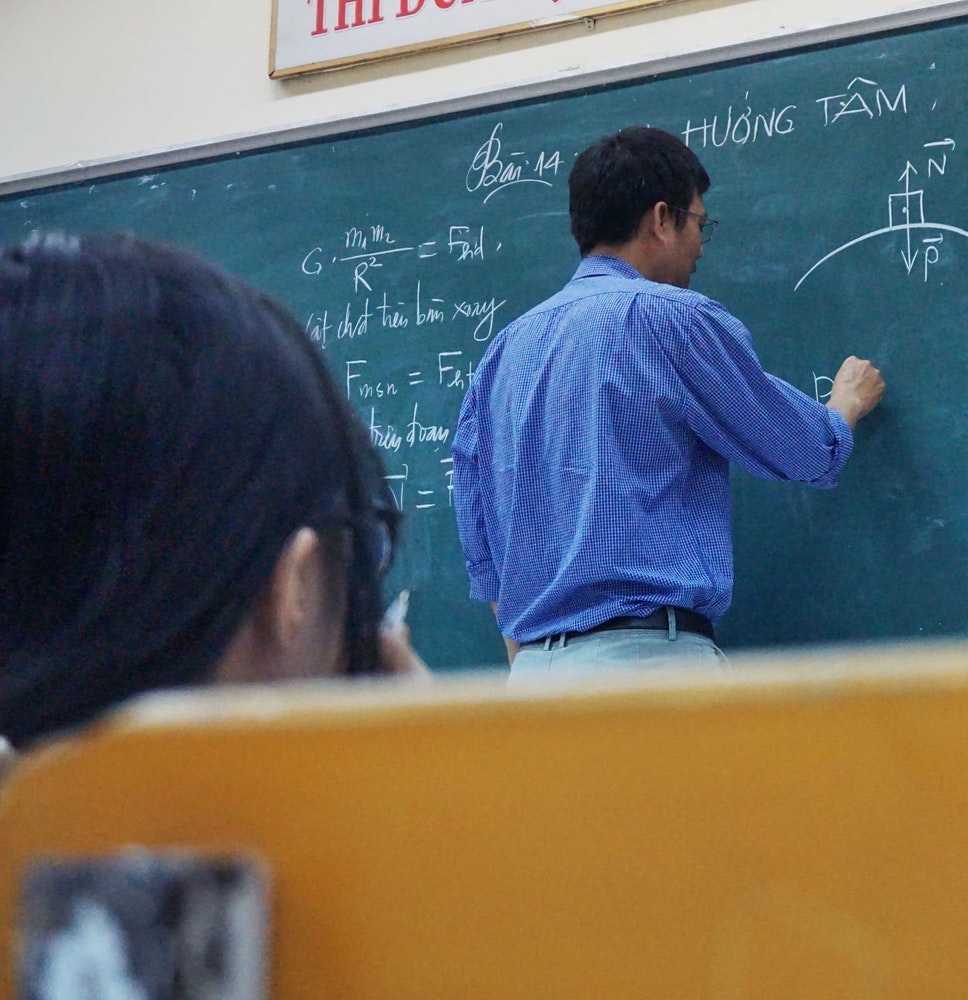 THI
Bài 14
HƯỚNG TÂM
G. m₁m₂/R² = Fhd.
vật chất trên bàn xoay
Fmsn = Fht
trên đoạn
N⃗ =
N⃗
P⃗
P